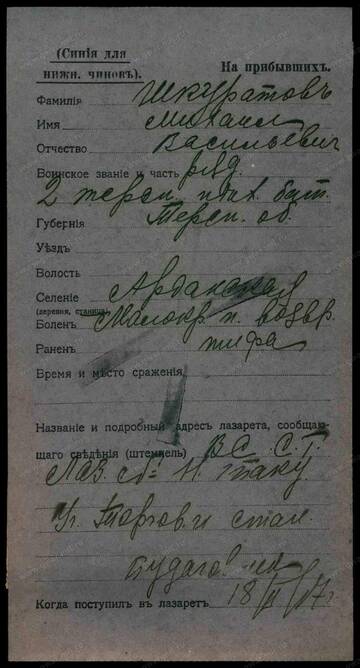 (Синія для
нижн. чиновъ).
На прибывшихъ.
Фамилія Шкуратовъ
Имя Михаил
Отчество Васильевич
Воинское званіе и часть ряд.
2 терск. пласт. бат.
Губернія Терск. об.
Уѣздъ
Волость
Селеніе
(деревня, станица)
Боленъ Малокр. п. возвр.
Раненъ тифа
Время и мѣсто сраженія
Названіе и подробный адресъ лазарета, сообщаю-
щаго свѣдѣнія (штемпель) В С. С. Г.
Лаз.
Уг. Торгов. и
Когда поступилъ въ лазаретъ 18/II 17 г.